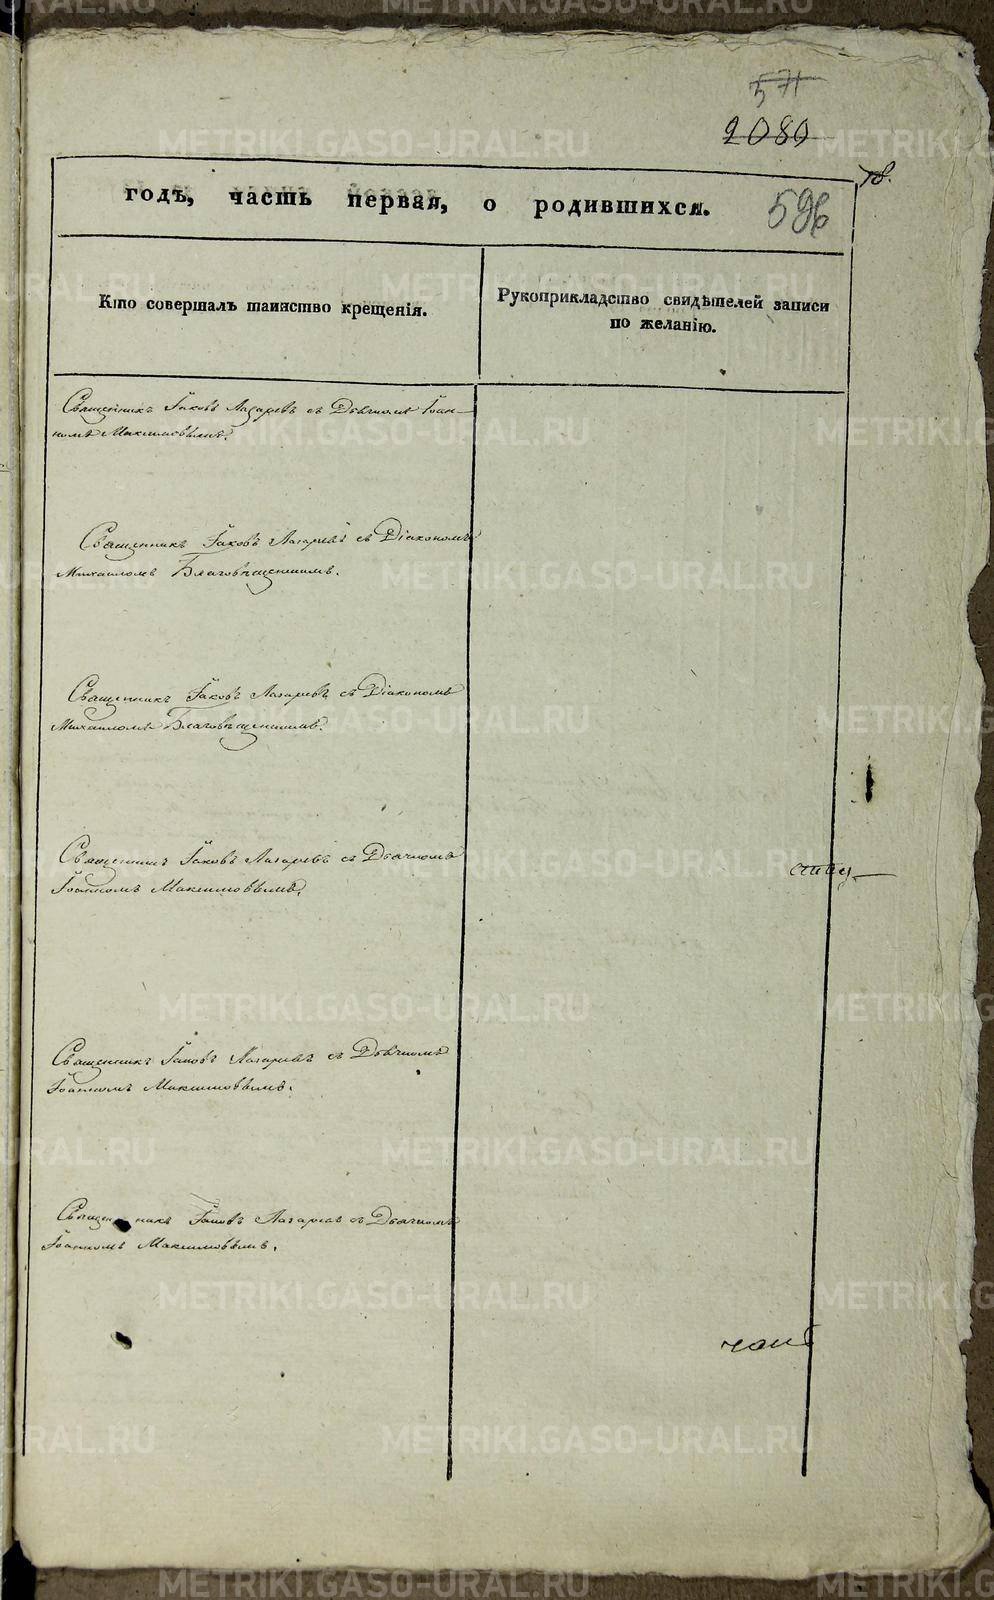 571
2080
18.
годъ, часть первая, о родившихся.
596
Кто совершалъ таинство крещенія.
Рукоприкладство свидѣтелей записи
по желанію.
Священникъ Іаковъ Лазаревъ съ Дьячкомъ Іоан-
номъ Максимовымъ.
Священникъ Іаковъ Лазаревъ съ Діакономъ
Михаиломъ Благовѣщенскимъ.
Священникъ Іаковъ Лазаревъ съ Діакономъ
Михаиломъ Благовѣщенскимъ.
Священникъ Іаковъ Лазаревъ съ Дьячкомъ
Іоанномъ Максимовымъ.
Священникъ Іаковъ Лазаревъ съ Дьячкомъ
Іоанномъ Максимовымъ.
Священникъ Іаковъ Лазаревъ съ Дьячкомъ
Іоанномъ Максимовымъ.
METRIKI.GASO-URAL.RU